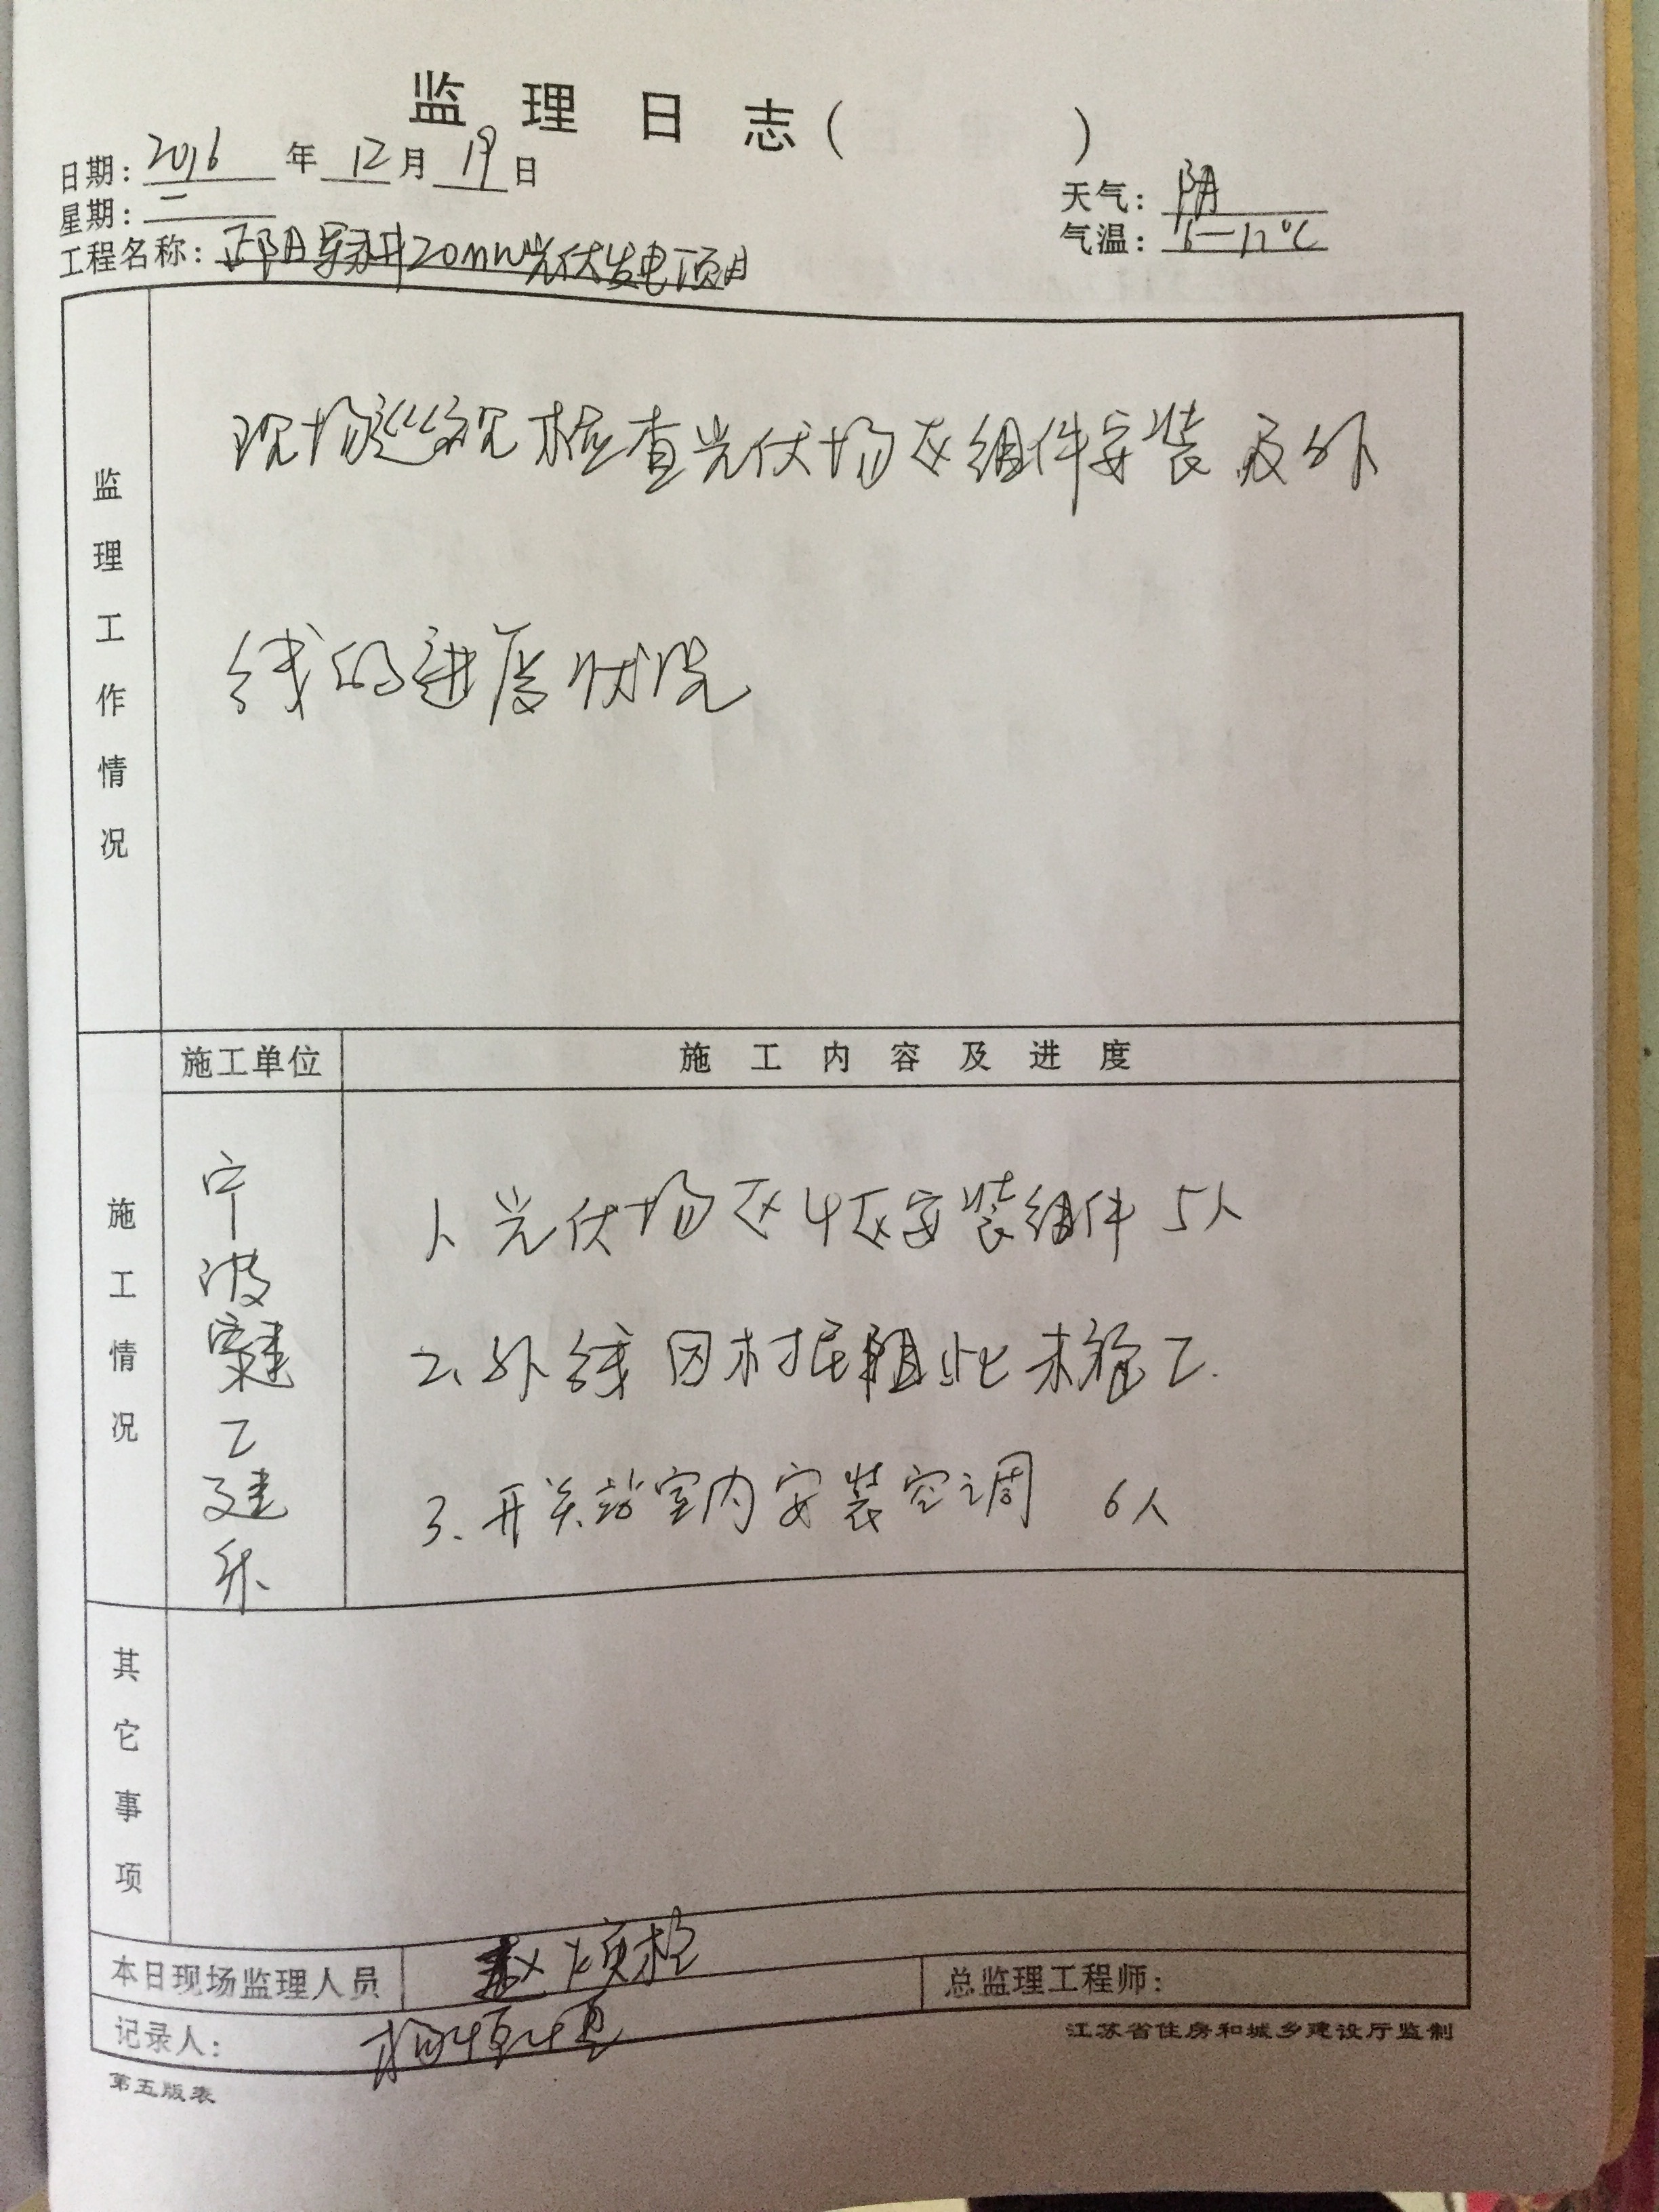 监 理 日 志 ( )
日期: 2016 年 12 月 19 日
天气: 阴
星期: 二
气温: 6—12℃
工程名称: 20MW光伏发电项目
监理工作情况
现场巡视检查光伏场区组件安装及外
线的进度状况
施工单位
施 工 内 容 及 进 度
施工情况
宁波
工建
1、光伏场区4区安装组件 5人
2、外线因村民阻止未施工.
3、开关站室内安装空调 6人
其它事项
本日现场监理人员 赵
总监理工程师:
记录人:
江苏省住房和城乡建设厅监制
第五版表